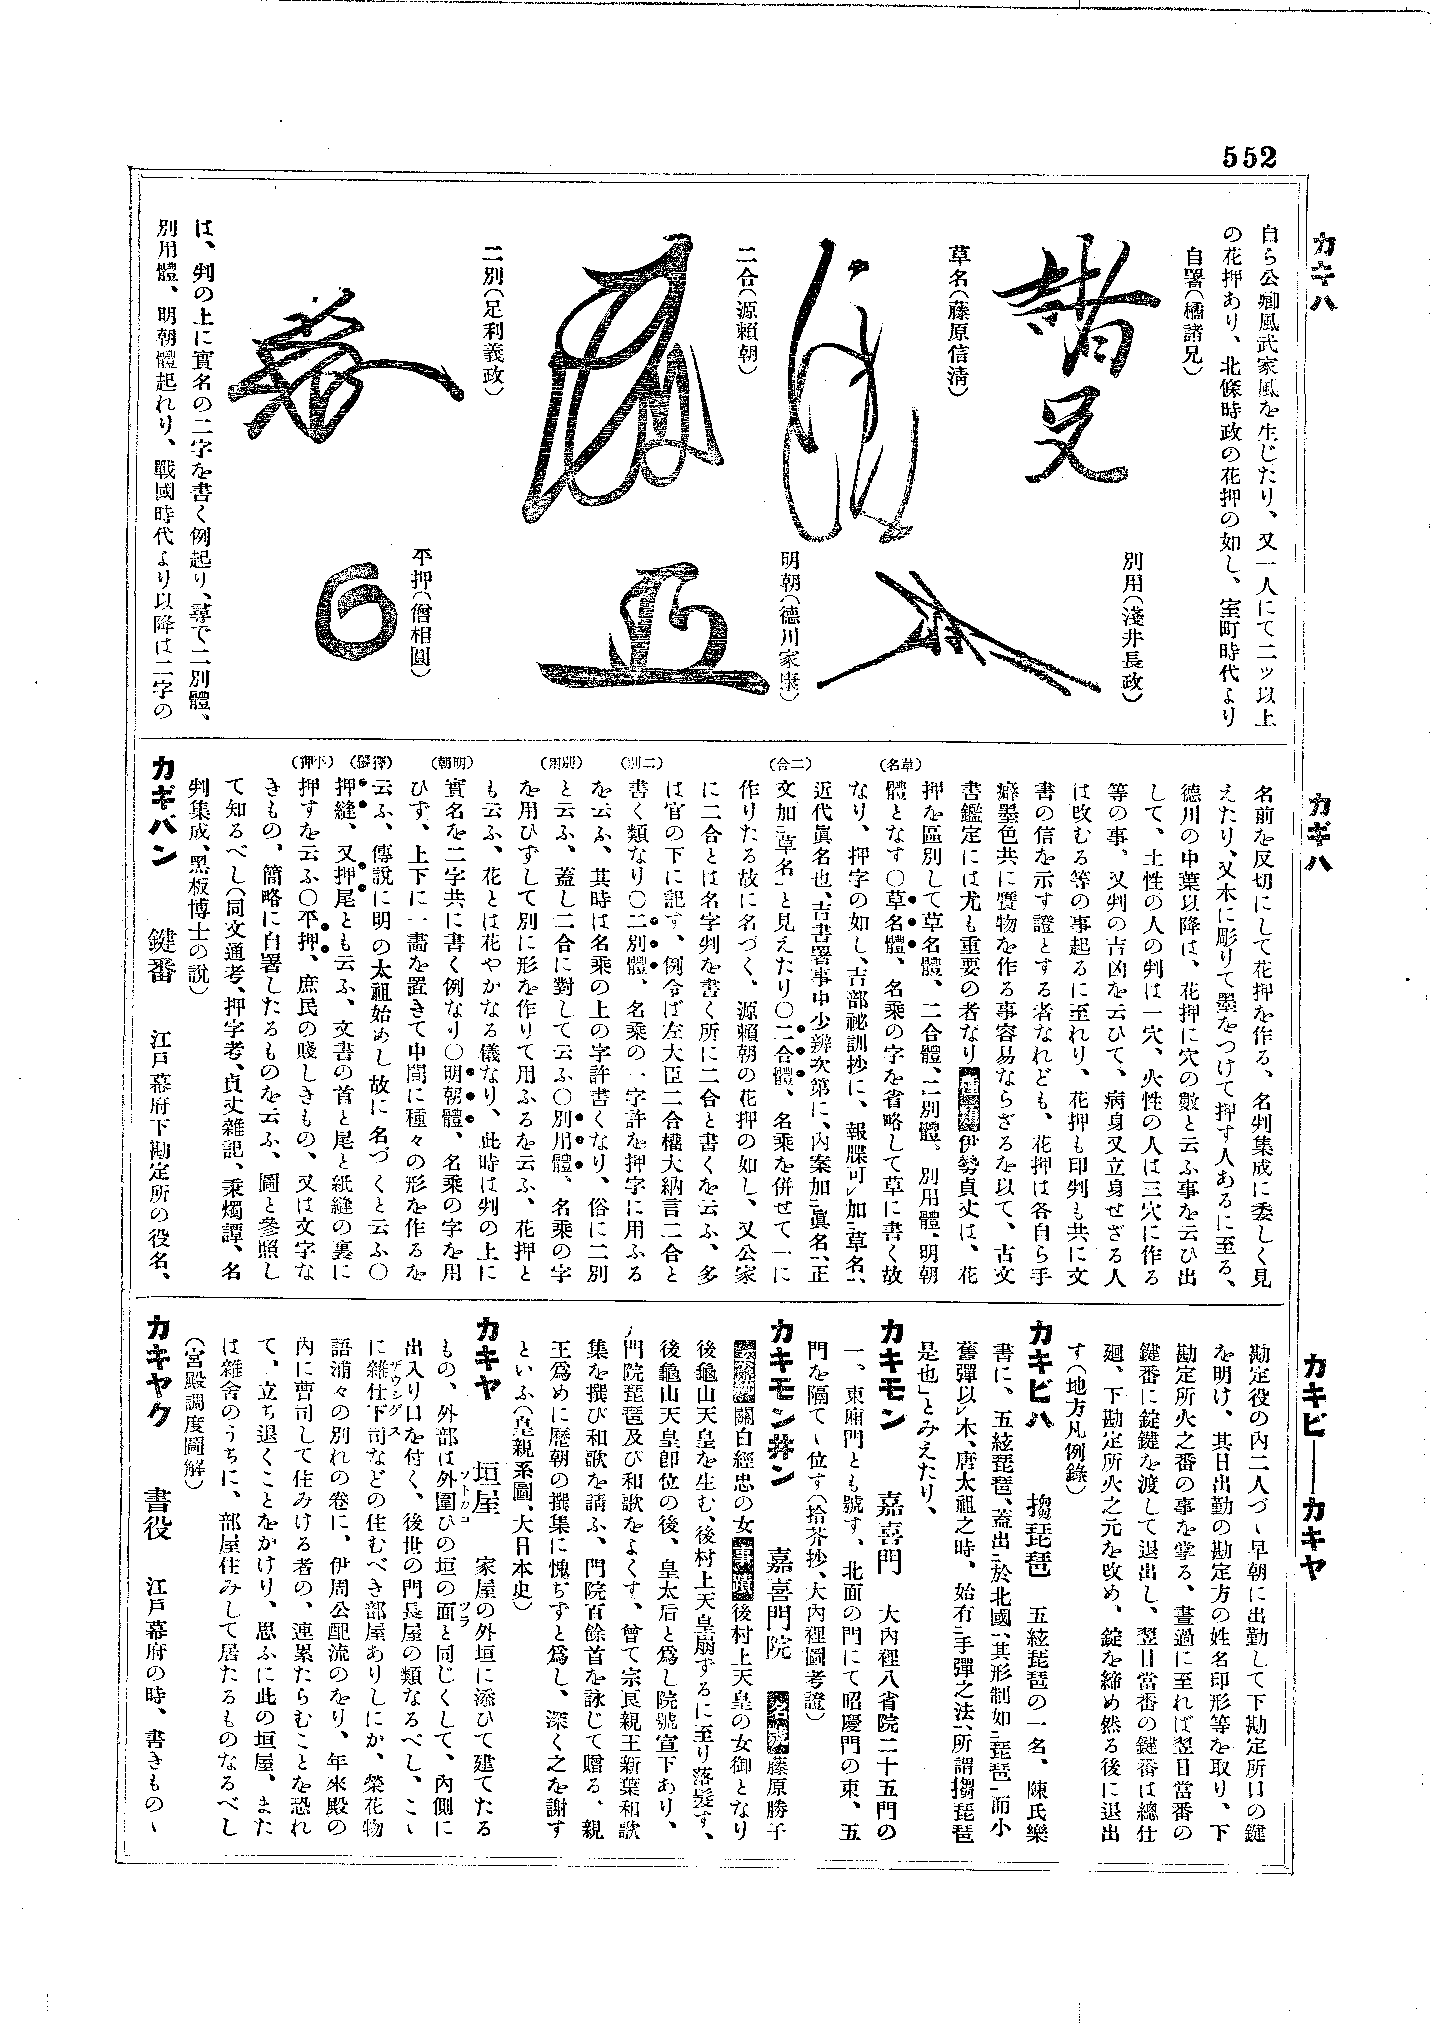 552
カキハ
カギハ
カキビ――カキヤ
自ら公卿風武家風を生じたり、又一人にて二ッ以上
の花押あり、北條時政の花押の如し、室町時代より
自署(橘諸兄)
別用(淺井長政)
草名(藤原信清)
明朝(德川家康)
二合(源賴朝)
平押(僧相圓)
二別(足利義政)
は、判の上に實名の二字を書く例起り、尋で二別體、
別用體、明朝體起れり、戰國時代より以降は二字の
名前を反切にして花押を作る、名判集成に委しく見
えたり、又木に彫りて墨をつけて押す人あるに至る、
德川の中葉以降は、花押に穴の數と云ふ事を云ひ出
して、土性の人の判は一穴、火性の人は三穴に作る
等の事、又判の吉凶を云ひて、病身又立身せざる人
は改むる等の事起るに至れり、花押も印判も共に文
書の信を示す證とする者なれども、花押は各自ら手
癖墨色共に贋物を作る事容易ならざるを以て、古文
書鑑定には尤も重要の者なり種類伊勢貞丈は、花
押を區別して草名體、二合體、二別體、別用體、明朝
(草名)
體となす〇草名體、名乘の字を省略して草に書く故
なり、押字の如し、吉部祕訓抄に、報牒可㆑加㆓草名㆒、
近代眞名也、吉書署事申少辨次第に、內案加㆓眞名㆒、正
文加㆓草名㆒と見えたり〇二合體、名乘を併せて一に
(二合)
作りたる故に名づく、源賴朝の花押の如し、又公家
に二合とは名字判を書く所に二合と書くを云ふ、多
は官の下に記す、例令ば左大臣二合權大納言二合と
書く類なり〇二別體、名乘の一字許を押字に用ふる
(二別)
を云ふ、其時は名乘の上の字許書くなり、俗に二別
と云ふ、蓋し二合に對して云ふ〇別用體、名乘の字
(別用)
を用ひずして別に形を作りて用ふるを云ふ、花押と
も云ふ、花とは花やかなる儀なり、此時は判の上に
實名を二字共に書く例なり〇明朝體、名乘の字を用
(明朝)
ひず、上下に一畫を置きて中間に種々の形を作るを
云ふ、傳說に明の太祖始めし故に名づくと云ふ〇
押縫、又押尾とも云ふ、文書の首と尾と紙縫の裏に
押すを云ふ〇平押、庶民の賤しきもの、又は文字な
(平押)
きもの、簡略に自署したるものを云ふ、圖と參照し
て知るべし(同文通考、押字考、貞丈雜記、秉燭譚、名
判集成、黑板博士の說)
カギバン 鍵番 江戸幕府下勘定所の役名、
勘定役の內二人づゝ早朝に出勤して下勘定所口の鍵
を明け、其日出勤の勘定方の姓名印形等を取り、下
勘定所火之番の事を掌る、晝過に至れば翌日當番の
鍵番に錠鍵を渡して退出し、翌日當番の鍵番は總仕
廻、下勘定所火之元を改め、錠を締め然る後に退出
す(地方凡例錄)
カキビハ 搊琵琶 五絃琵琶の一名、陳氏樂
書に、五絃琵琶、蓋出㆓於北國㆒、其形制如㆓琵琶㆒而小
舊彈以㆑木、唐太祖之時、始有㆓手彈之法㆒、所謂搊琵琶
是也」とみえたり、
カキモン 嘉喜門 大內裡八省院二十五門の
一、東廂門とも號す、北面の門にて昭慶門の東、五
門を隔てゝ位す(拾芥抄、大內裡圖考證)
カキモン井ン 嘉喜門院 名號藤原勝子
關白經忠の女事蹟後村上天皇の女御となり
後龜山天皇を生む、後村上天皇崩ずるに至り落髮す、
後龜山天皇卽位の後、皇太后と爲し院號宣下あり、
門院琵琶及び和歌をよくす、曾て宗良親王新葉和歌
集を撰び和歌を請ふ、門院百餘首を詠じて贈る、親
王爲めに歷朝の撰集に愧ぢずと爲し、深く之を謝す
といふ(皇親系圖、大日本史)
カキヤ 垣屋 家屋の外垣に添ひて建てたる
もの、外部は外圍ひの垣の面と同じくして、內側に
出入り口を付く、後世の門長屋の類なるべし、こゝ
に雜仕下司などの住むべき部屋ありしにか、榮花物
語浦々の別れの卷に、伊周公配流のをり、年來殿の
內に曹司して住みける者の、連累たらむことを恐れ
て、立ち退くことをかけり、思ふに此の垣屋、また
は雜舍のうちに、部屋住みして居たるものなるべし
(宮殿調度圖解)
カキヤク 書役 江戸幕府の時、書きものゝ